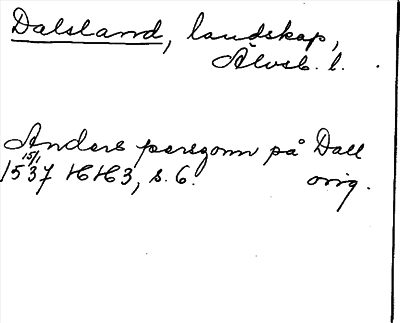 Dalsland, landskap,
Älvsb. l.
Anders perszonn på Dall
15/1
1537 HH3, s. 6. orig.